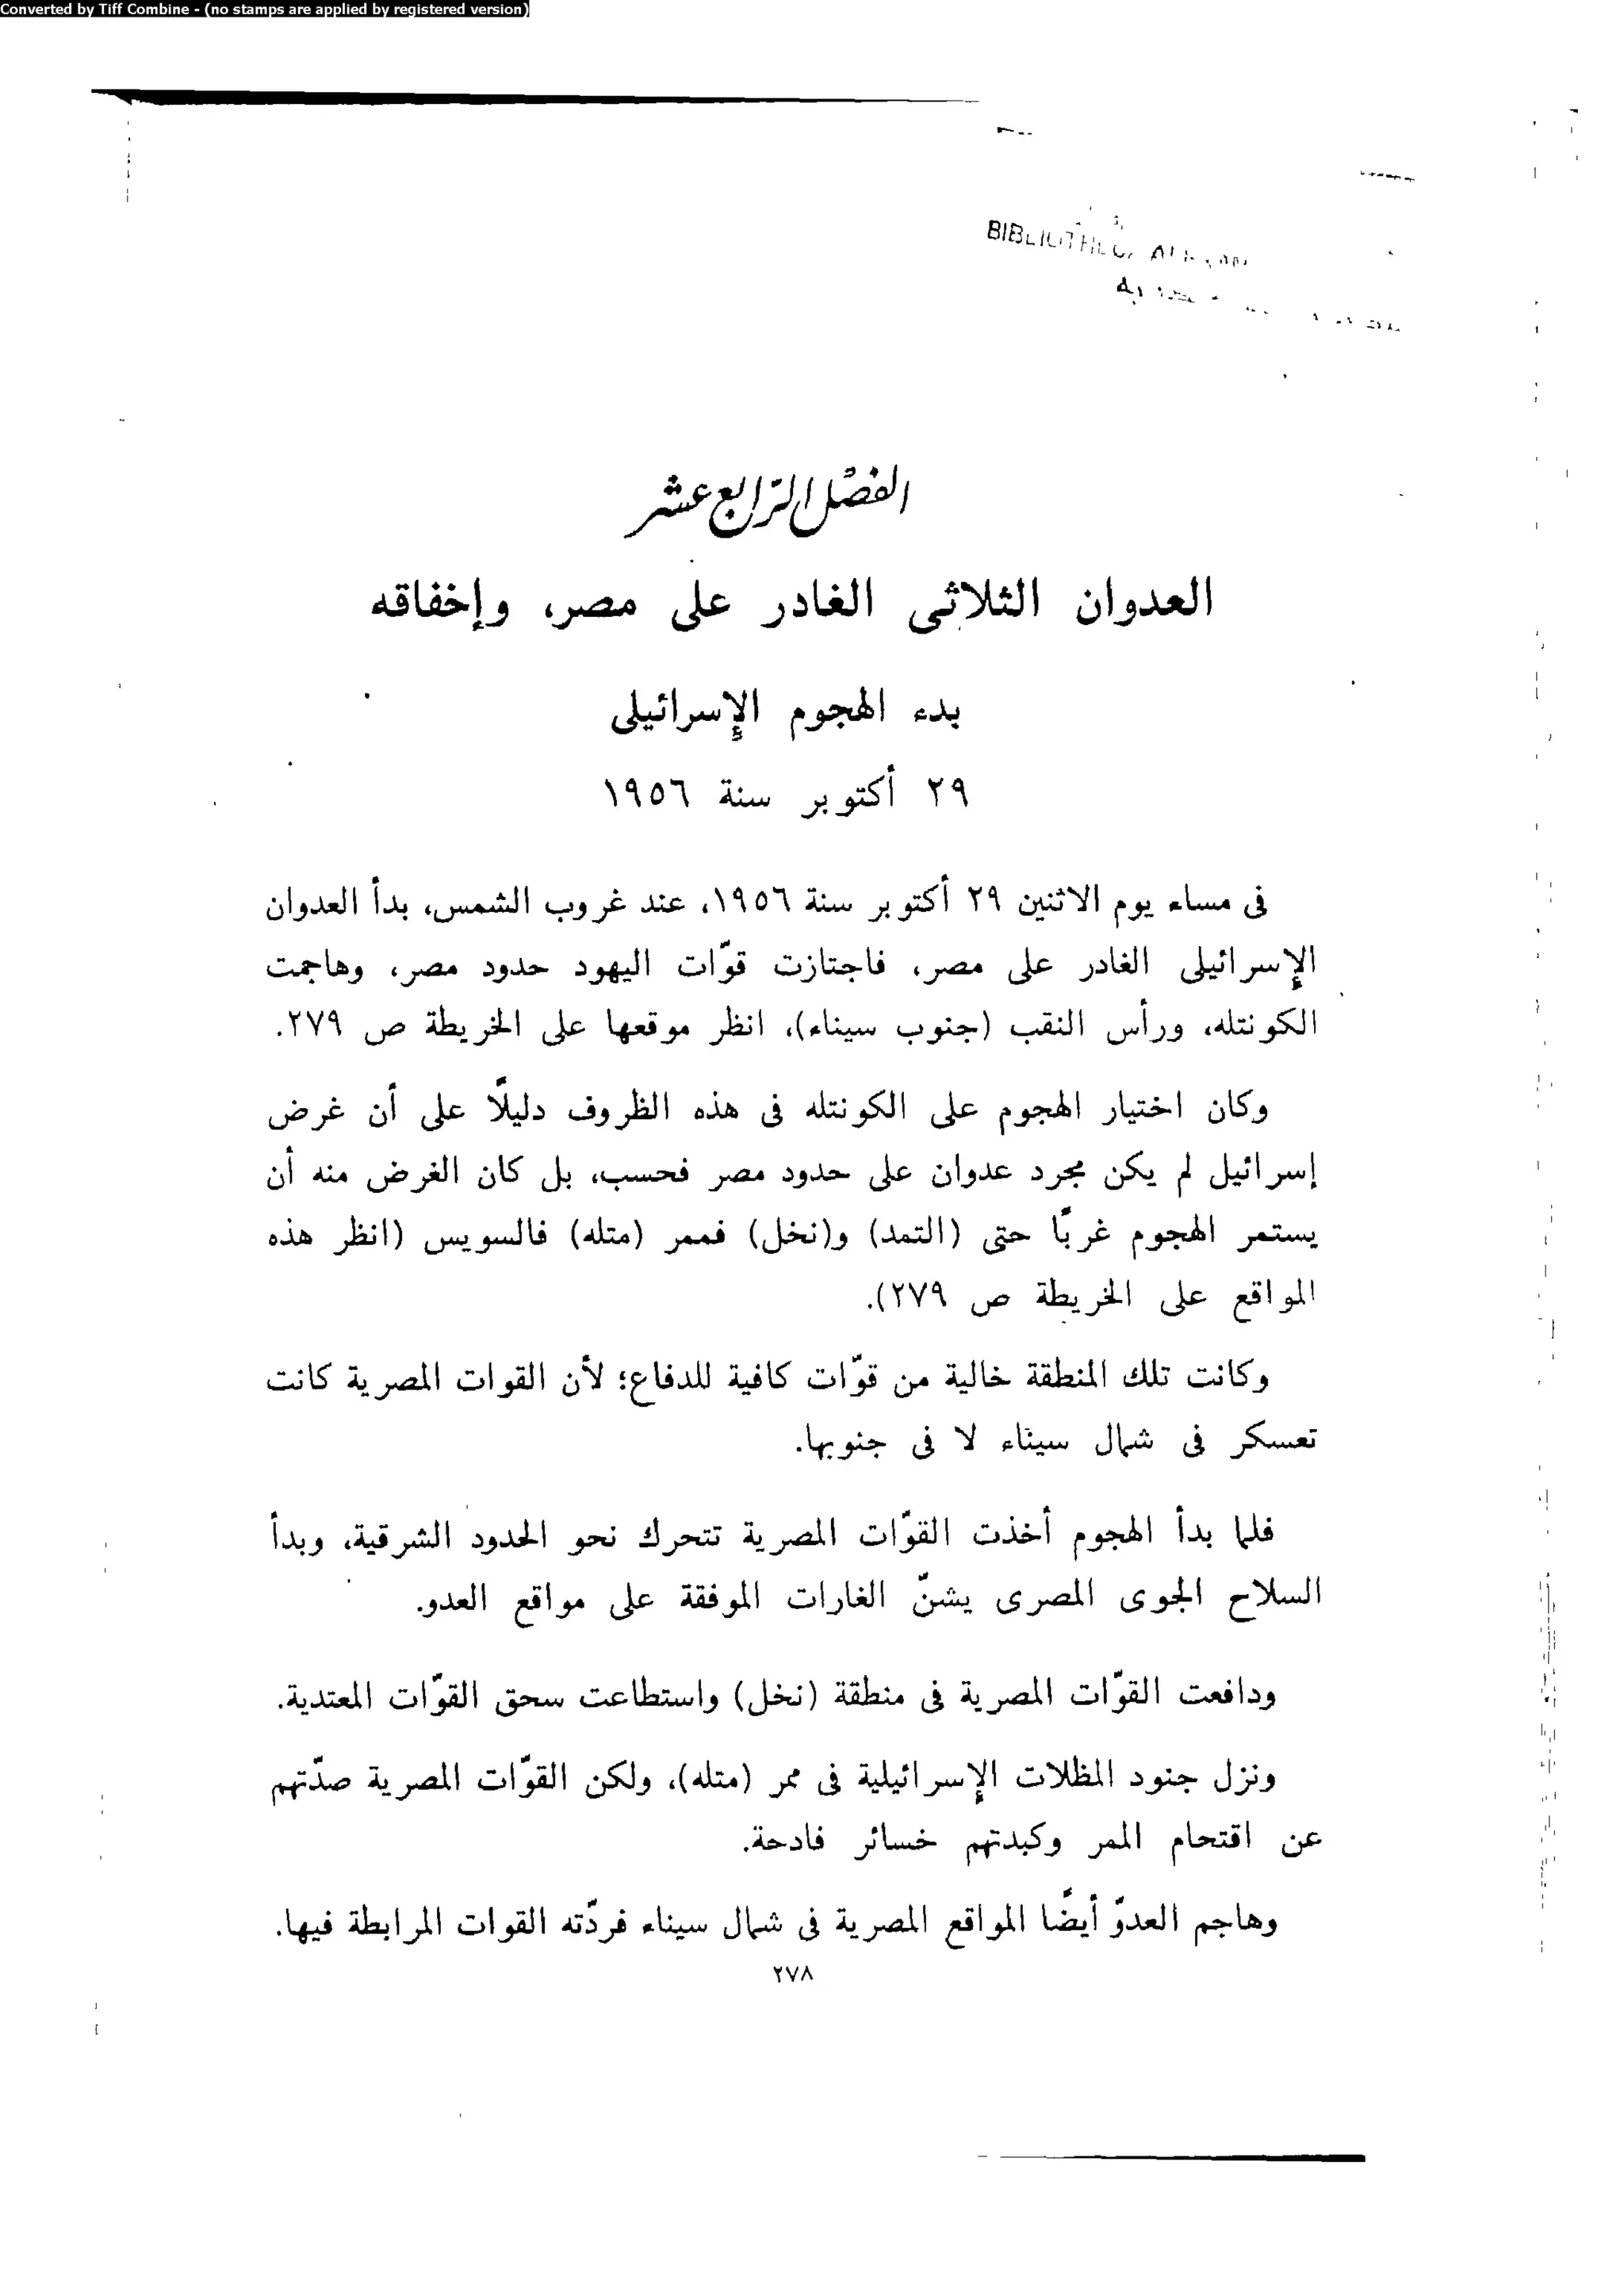 Converted by Tiff Combine - (no stamps are applied by registered version)
الفصل الرابع عشر
العدوان الثلاثى الغادر على مصر، وإخفاقه
بدء الهجوم الإسرائيلى
٢٩ أكتوبر سنة ١٩٥٦
فى مساء يوم الاثنين ٢٩ أكتوبر سنة ١٩٥٦، عند غروب الشمس، بدأ العدوان
الإسرائيلى الغادر على مصر، فاجتازت قوّات اليهود حدود مصر، وهاجمت
الكونتله، ورأس النقب (جنوب سيناء)، انظر موقعها على الخريطة ص ٢٧٩.
وكان اختيار الهجوم على الكونتله فى هذه الظروف دليلًا على أن غرض
إسرائيل لم يكن مجرد عدوان على حدود مصر فحسب، بل كان الغرض منه أن
يستمر الهجوم غربًا حتى (التمد) و(نخل) فممر (متله) فالسويس (انظر هذه
المواقع على الخريطة ص ٢٧٩).
وكانت تلك المنطقة خالية من قوّات كافية للدفاع؛ لأن القوات المصرية كانت
تعسكر فى شمال سيناء لا فى جنوبها.
فلما بدأ الهجوم أخذت القوّات المصرية تتحرك نحو الحدود الشرقية، وبدأ
السلاح الجوى المصرى يشنّ الغارات الموفقة على مواقع العدو.
ودافعت القوّات المصرية فى منطقة (نخل) واستطاعت سحق القوّات المعتدية.
ونزل جنود المظلات الإسرائيلية فى ممر (متله)، ولكن القوّات المصرية صدّتهم
عن اقتحام الممر وكبدتهم خسائر فادحة.
وهاجم العدوّ أيضًا المواقع المصرية فى شمال سيناء فردّته القوات المرابطة فيها.
٢٧٨